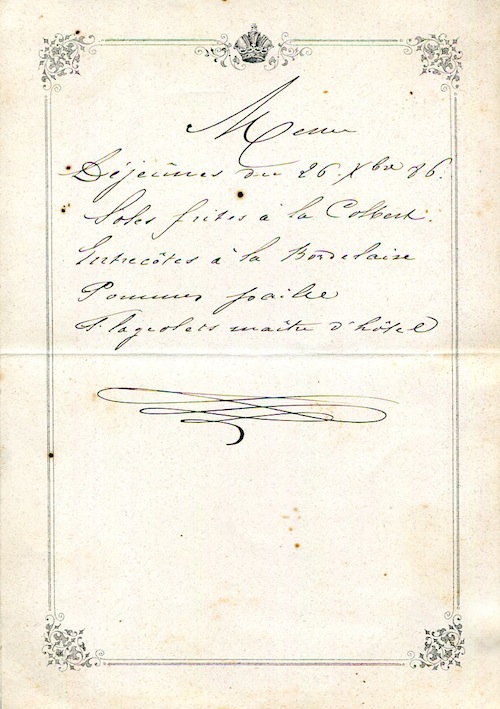 Menu
Déjeûnes du 26. Xbre 86.
Soles frites à la Colbert.
Entrecôtes à la Bordelaise
Pommes paille
Flageolets maître d'hôtel